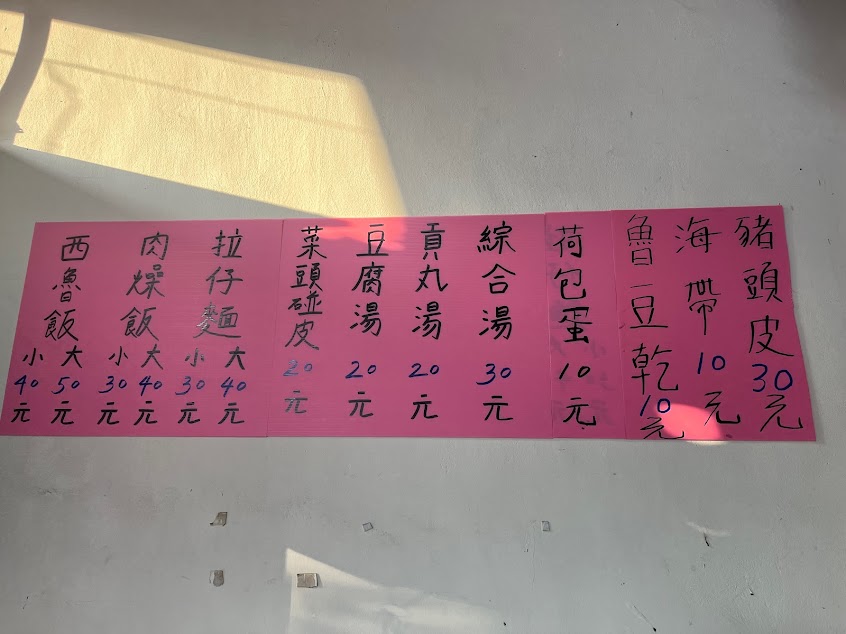 豬頭皮30元
海帶10元
魯豆乾10元
荷包蛋10元
綜合湯30元
貢丸湯20元
豆腐湯20元
菜頭碰皮20元
拉仔麵
大40元
小30元
肉燥飯
大40元
小30元
西魯飯
大50元
小40元